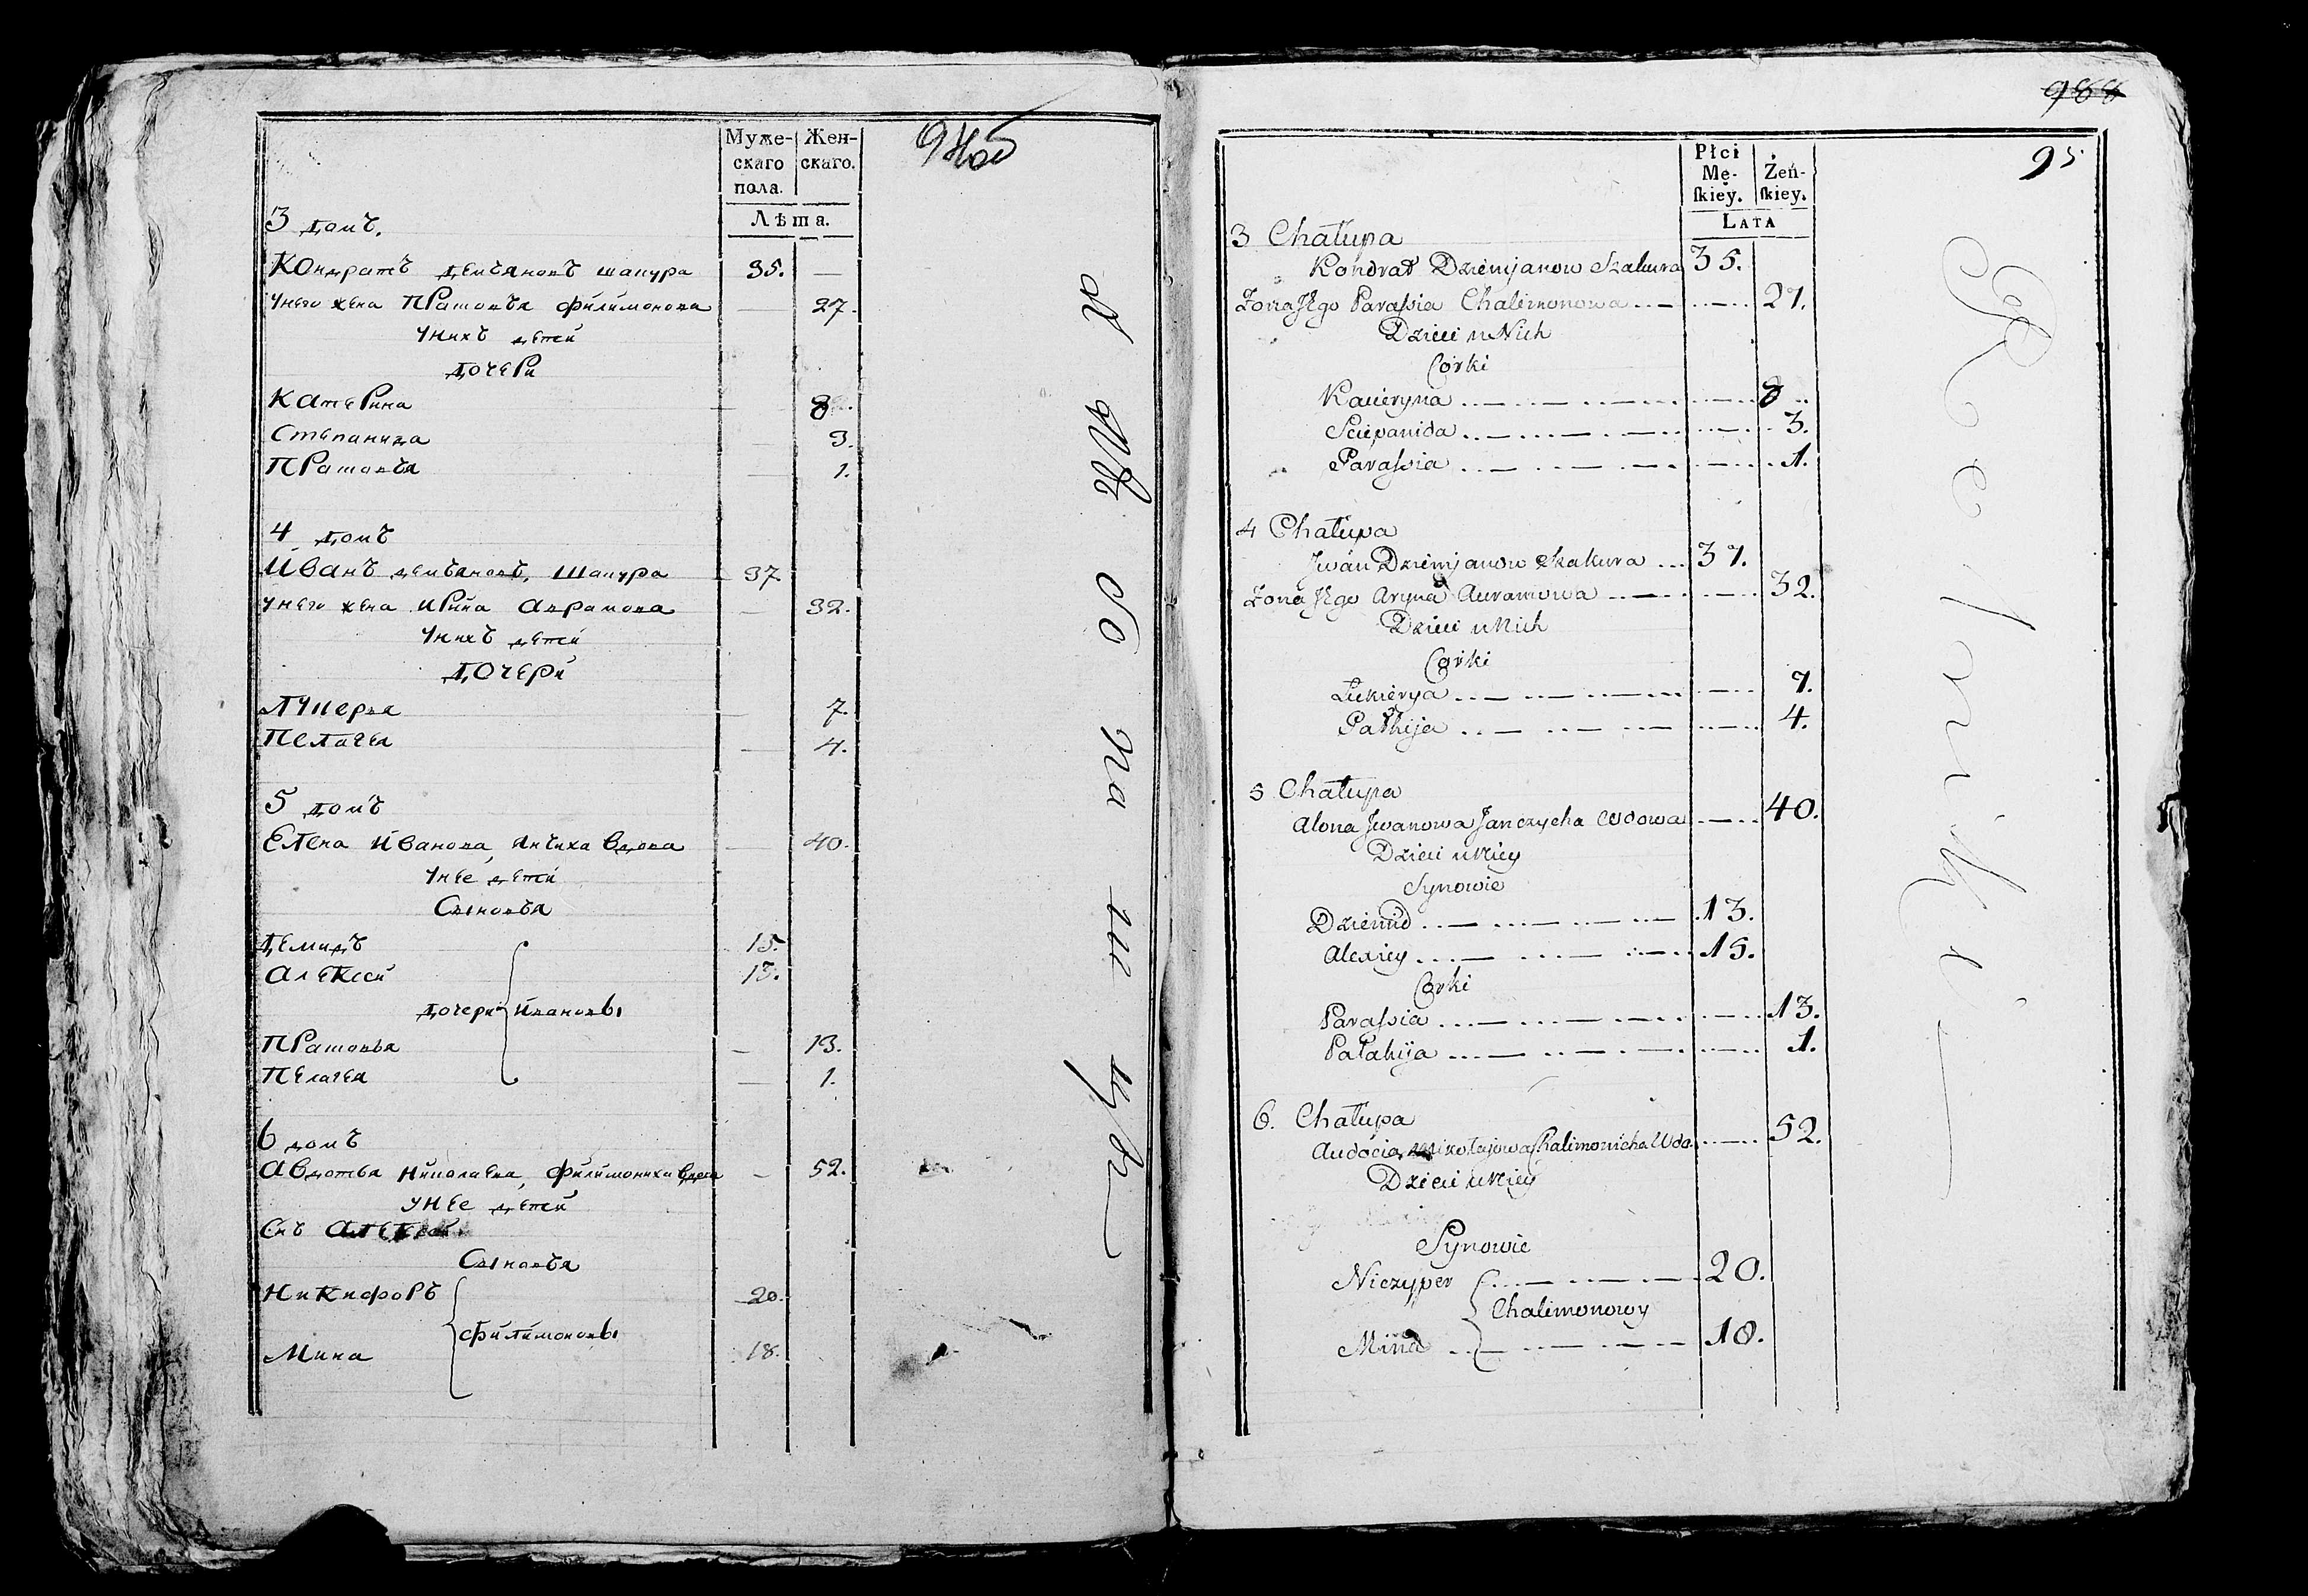 Муже-
скаго
пола.
Жен-
скаго.
Лѣта.
3 домъ.
Кондратъ Демьяновъ шакура 35. —
Унего жена Прасковья филимонова — 27.
Унихъ детей
дочери
Катерина — 8.
Степанида — 3.
Прасковья — 1.
4 домъ
Иванъ демьяновъ шакура 37.
Унего жена Ирина Аврамова — 32.
Унихъ детей
дочери
Лукерья — 7.
Пелагея — 4.
5 домъ
Елена Иванова, Вдова — 40.
Унее детей
Сыновья
Демидъ 15.
Алексей 13.
дочери Ивановы
Прасковья — 13.
Пелагея — 1.
6 домъ
Авдотья Николаева, филимониха Вдова — 52.
Унее детей
Сыновья
Никифоръ 20.
филимоновы
Мина 18.
988
95
Płci
Mę-
skiey.
Żeń-
skiey.
Lata
3 Chałupa
Kondrat Dziemjanow Szakura 35.
Żona Jego Parassia Chalimonowa 27.
Dzieci u Nich
Corki
Kacieryna 8
Sciepanida 3.
Parassia 1.
4 Chałupa
Jwan Dziemjanow Szakura 37.
Żona Jego Aryna Auramowa 32.
Dzieci u Nich
Corki
Łukierya 7.
Pałahija 4.
5 Chałupa
Alona Jwanowa Janczycha Wdowa 40.
Dzieci u Niey
Synowie
Dziemid 13.
Alexiey 15.
Corki
Parassia 13.
Pałahija 1.
6. Chałupa
Audocia Mikołajowa Chalimonicha Wdo. 52.
Dzieci u Niey
Synowie
Niczyper 20.
Chalimonowy
Mina 18.